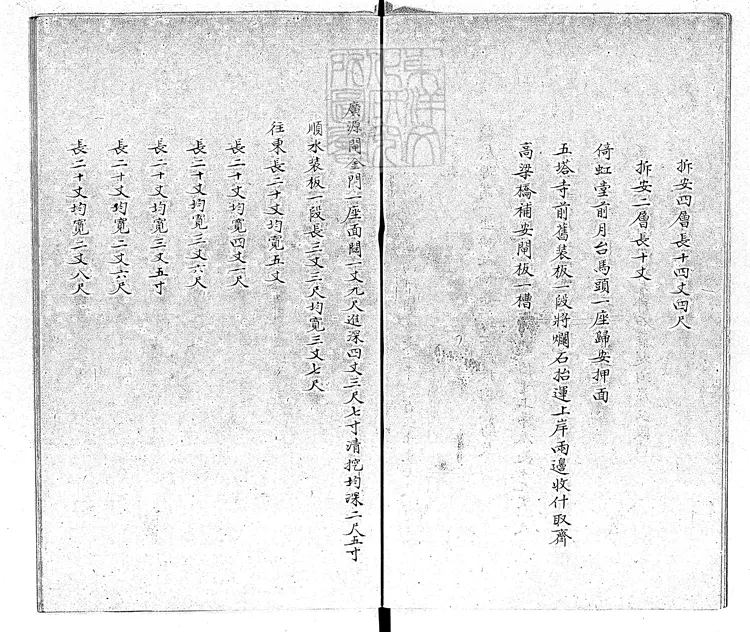 拆安四層長十四丈四尺
拆安二層長十丈
倚虹堂前月台馬頭一座歸安押面
五塔寺前舊裝板一段將爛石抬運上岸兩邊收什取齊
高梁橋補安閘板一槽
廣源閘金門一座面闊一丈九尺進深四丈三尺七寸清挖均深二尺五寸
順水裝板一段長三丈三尺均寬三丈七尺
往東長二十丈均寬五丈
長二十丈均寬四丈一尺
長二十丈均寬三丈六尺
長二十丈均寬三丈五寸
長二十丈均寬二丈六尺
長二十丈均寬二丈八尺